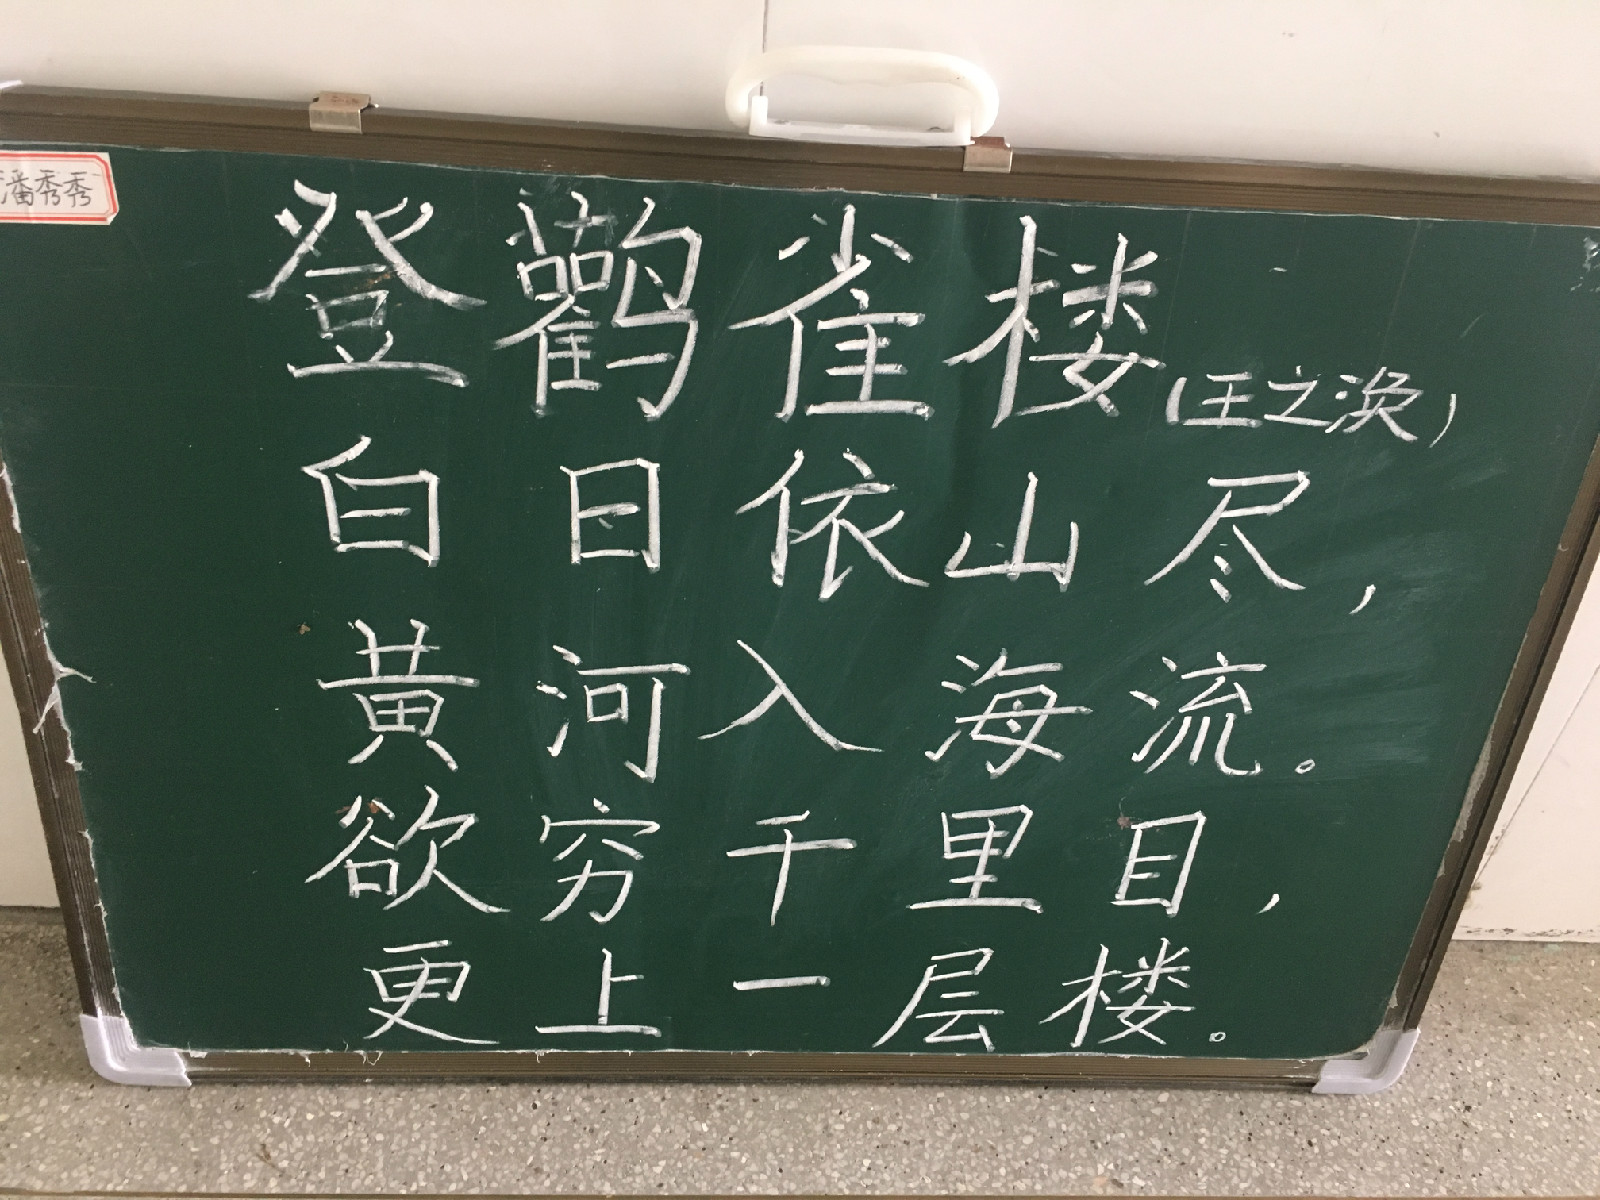 潘秀秀
登鹳雀楼（王之涣）
白日依山尽，
黄河入海流。
欲穷千里目，
更上一层楼。